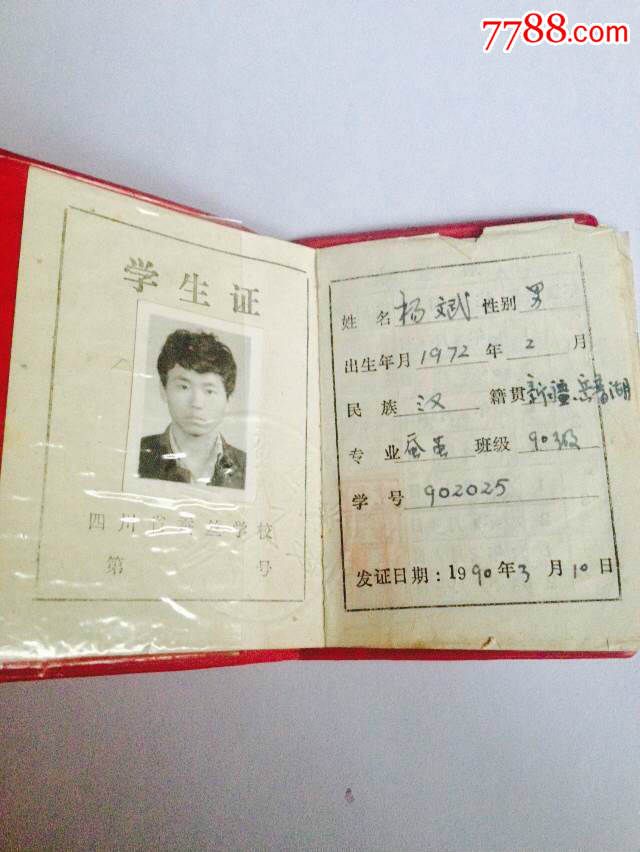 7788.com
学生证
四川省蚕丝学校
第 号
姓名 杨斌 性别 男
出生年月 1972 年 2 月
民族 汉 籍贯 新疆
专业 蚕 班级 90级
学号 902025
发证日期：1990年3月10日